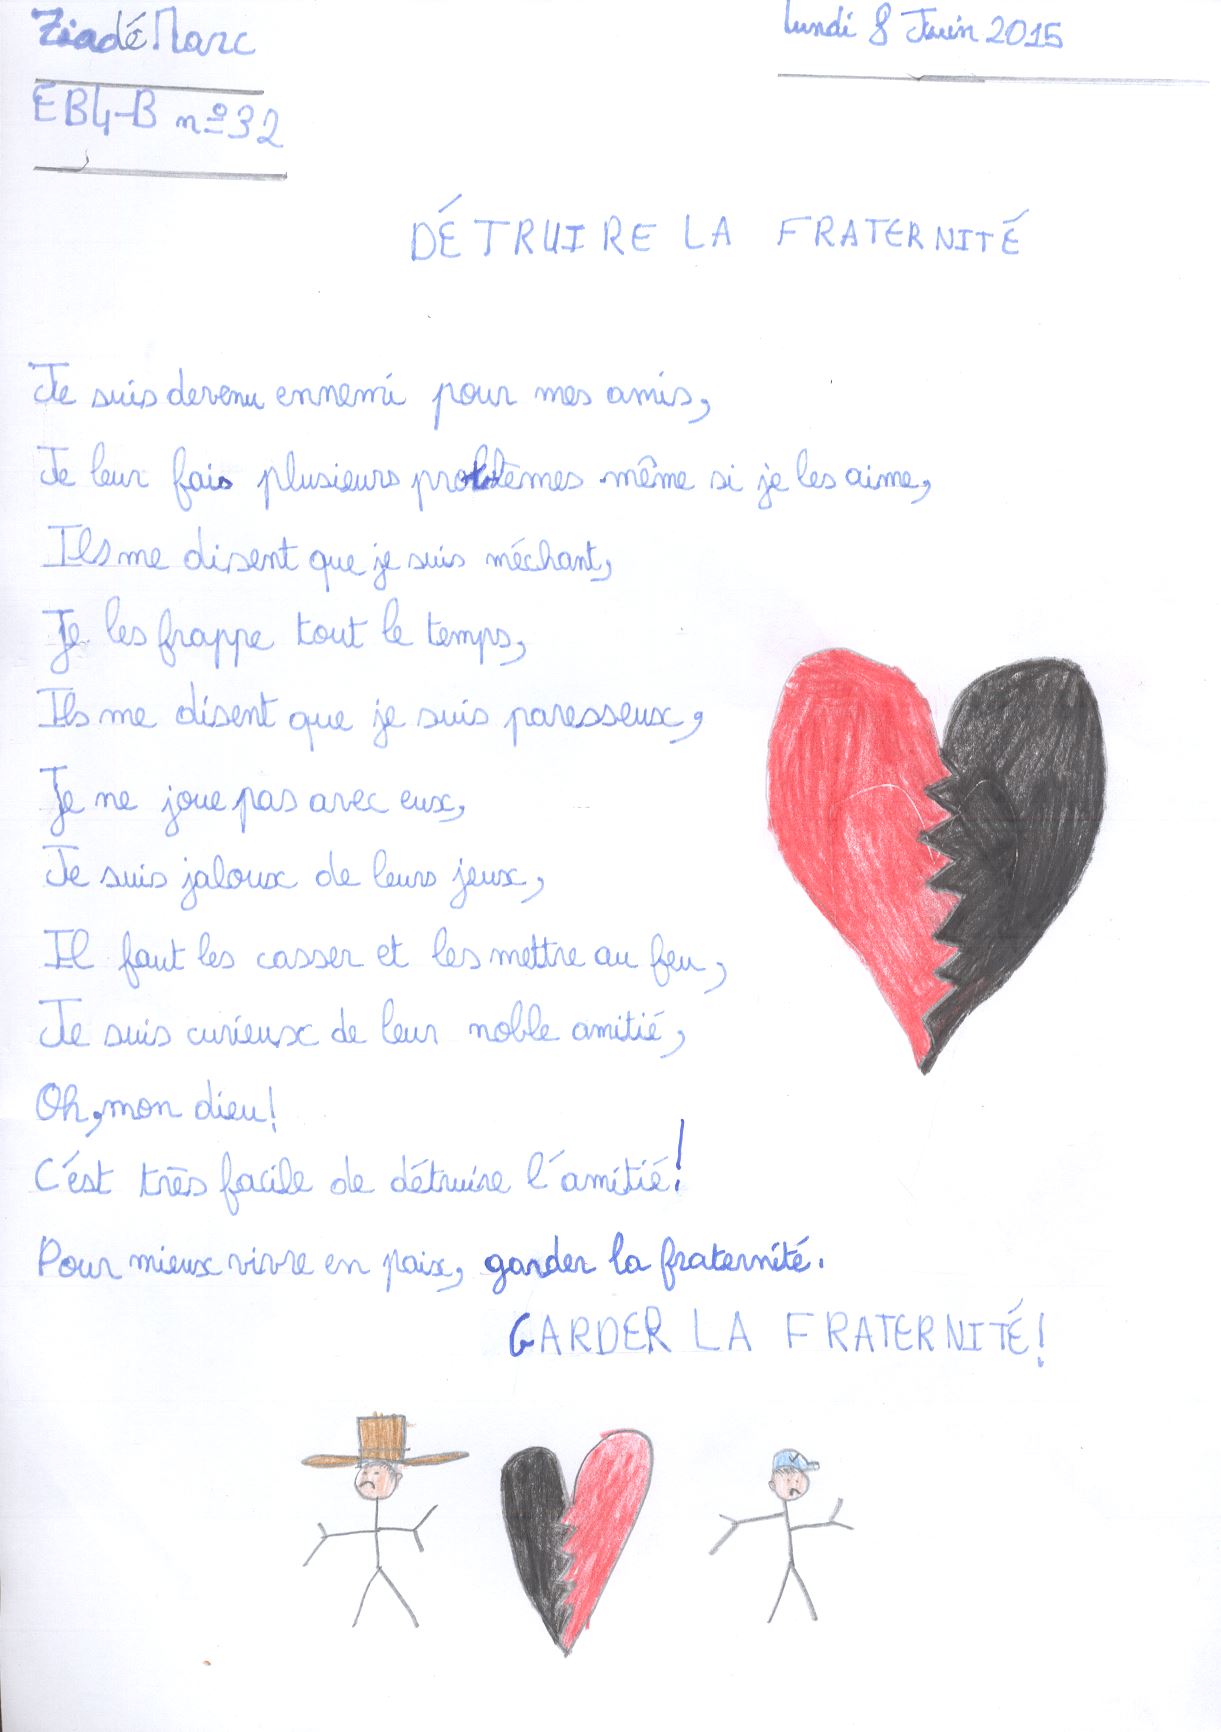 Ziadé Marc
Lundi 8 Juin 2015
EB4-B nº32
DÉTRUIRE LA FRATERNITÉ
Je suis devenu ennemi pour mes amis,
Je leur fais plusieurs problèmes même si je les aime,
Ils me disent que je suis méchant,
Je les frappe tout le temps,
Ils me disent que je suis paresseux,
Je ne joue pas avec eux,
Je suis jaloux de leurs jeux,
Il faut les casser et les mettre au feu,
Je suis curieux de leur noble amitié,
Oh, mon dieu!
C'est très facile de détruire l'amitié!
Pour mieux vivre en paix, garder la fraternité.
GARDER LA FRATERNITÉ!